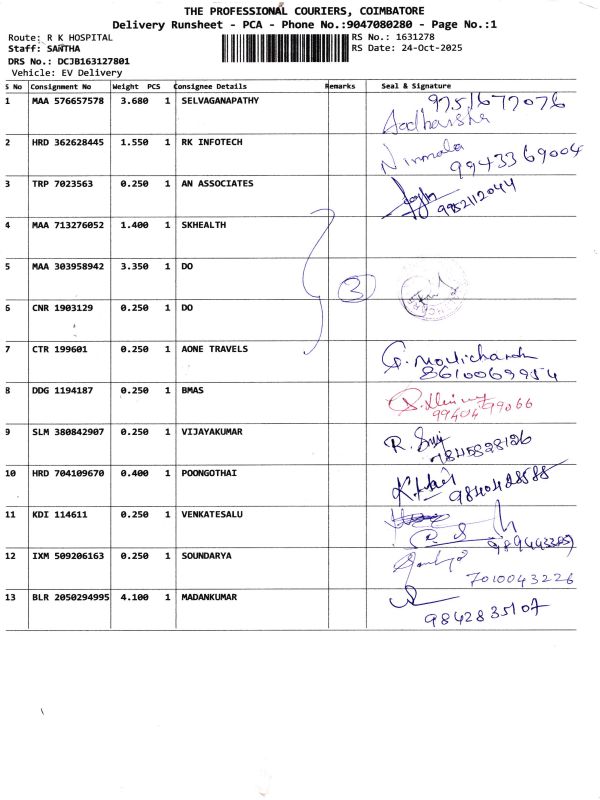 THE PROFESSIONAL COURIERS, COIMBATORE
Delivery Runsheet - PCA - Phone No.:9047080280 - Page No.:1
Route: R K HOSPITAL
RS No.: 1631278
Staff: SARTHA
RS Date: 24-Oct-2025
DRS No.: DCJB163127801
Vehicle: EV Delivery
S No Consignment No Weight PCS Consignee Details Remarks Seal & Signature
1 MAA 576657578 3.680 1 SELVAGANAPATHY 9751677076
Aadharsha
2 HRD 362628445 1.550 1 RK INFOTECH Nirmala
9943369004
3 TRP 7023563 0.250 1 AN ASSOCIATES
9952112044
4 MAA 713276052 1.400 1 SKHEALTH
5 MAA 303958942 3.350 1 DO 3
6 CNR 1903129 0.250 1 DO
7 CTR 199601 0.250 1 AONE TRAVELS G. Moulichandh
8610069954
8 DDG 1194187 0.250 1 BMAS
99404 99066
9 SLM 380842907 0.250 1 VIJAYAKUMAR
7845828126
10 HRD 704109670 0.400 1 POONGOTHAI
9840428588
11 KDI 114611 0.250 1 VENKATESALU
12 IXM 509206163 0.250 1 SOUNDARYA
7010043226
13 BLR 2050294995 4.100 1 MADANKUMAR
9842835107